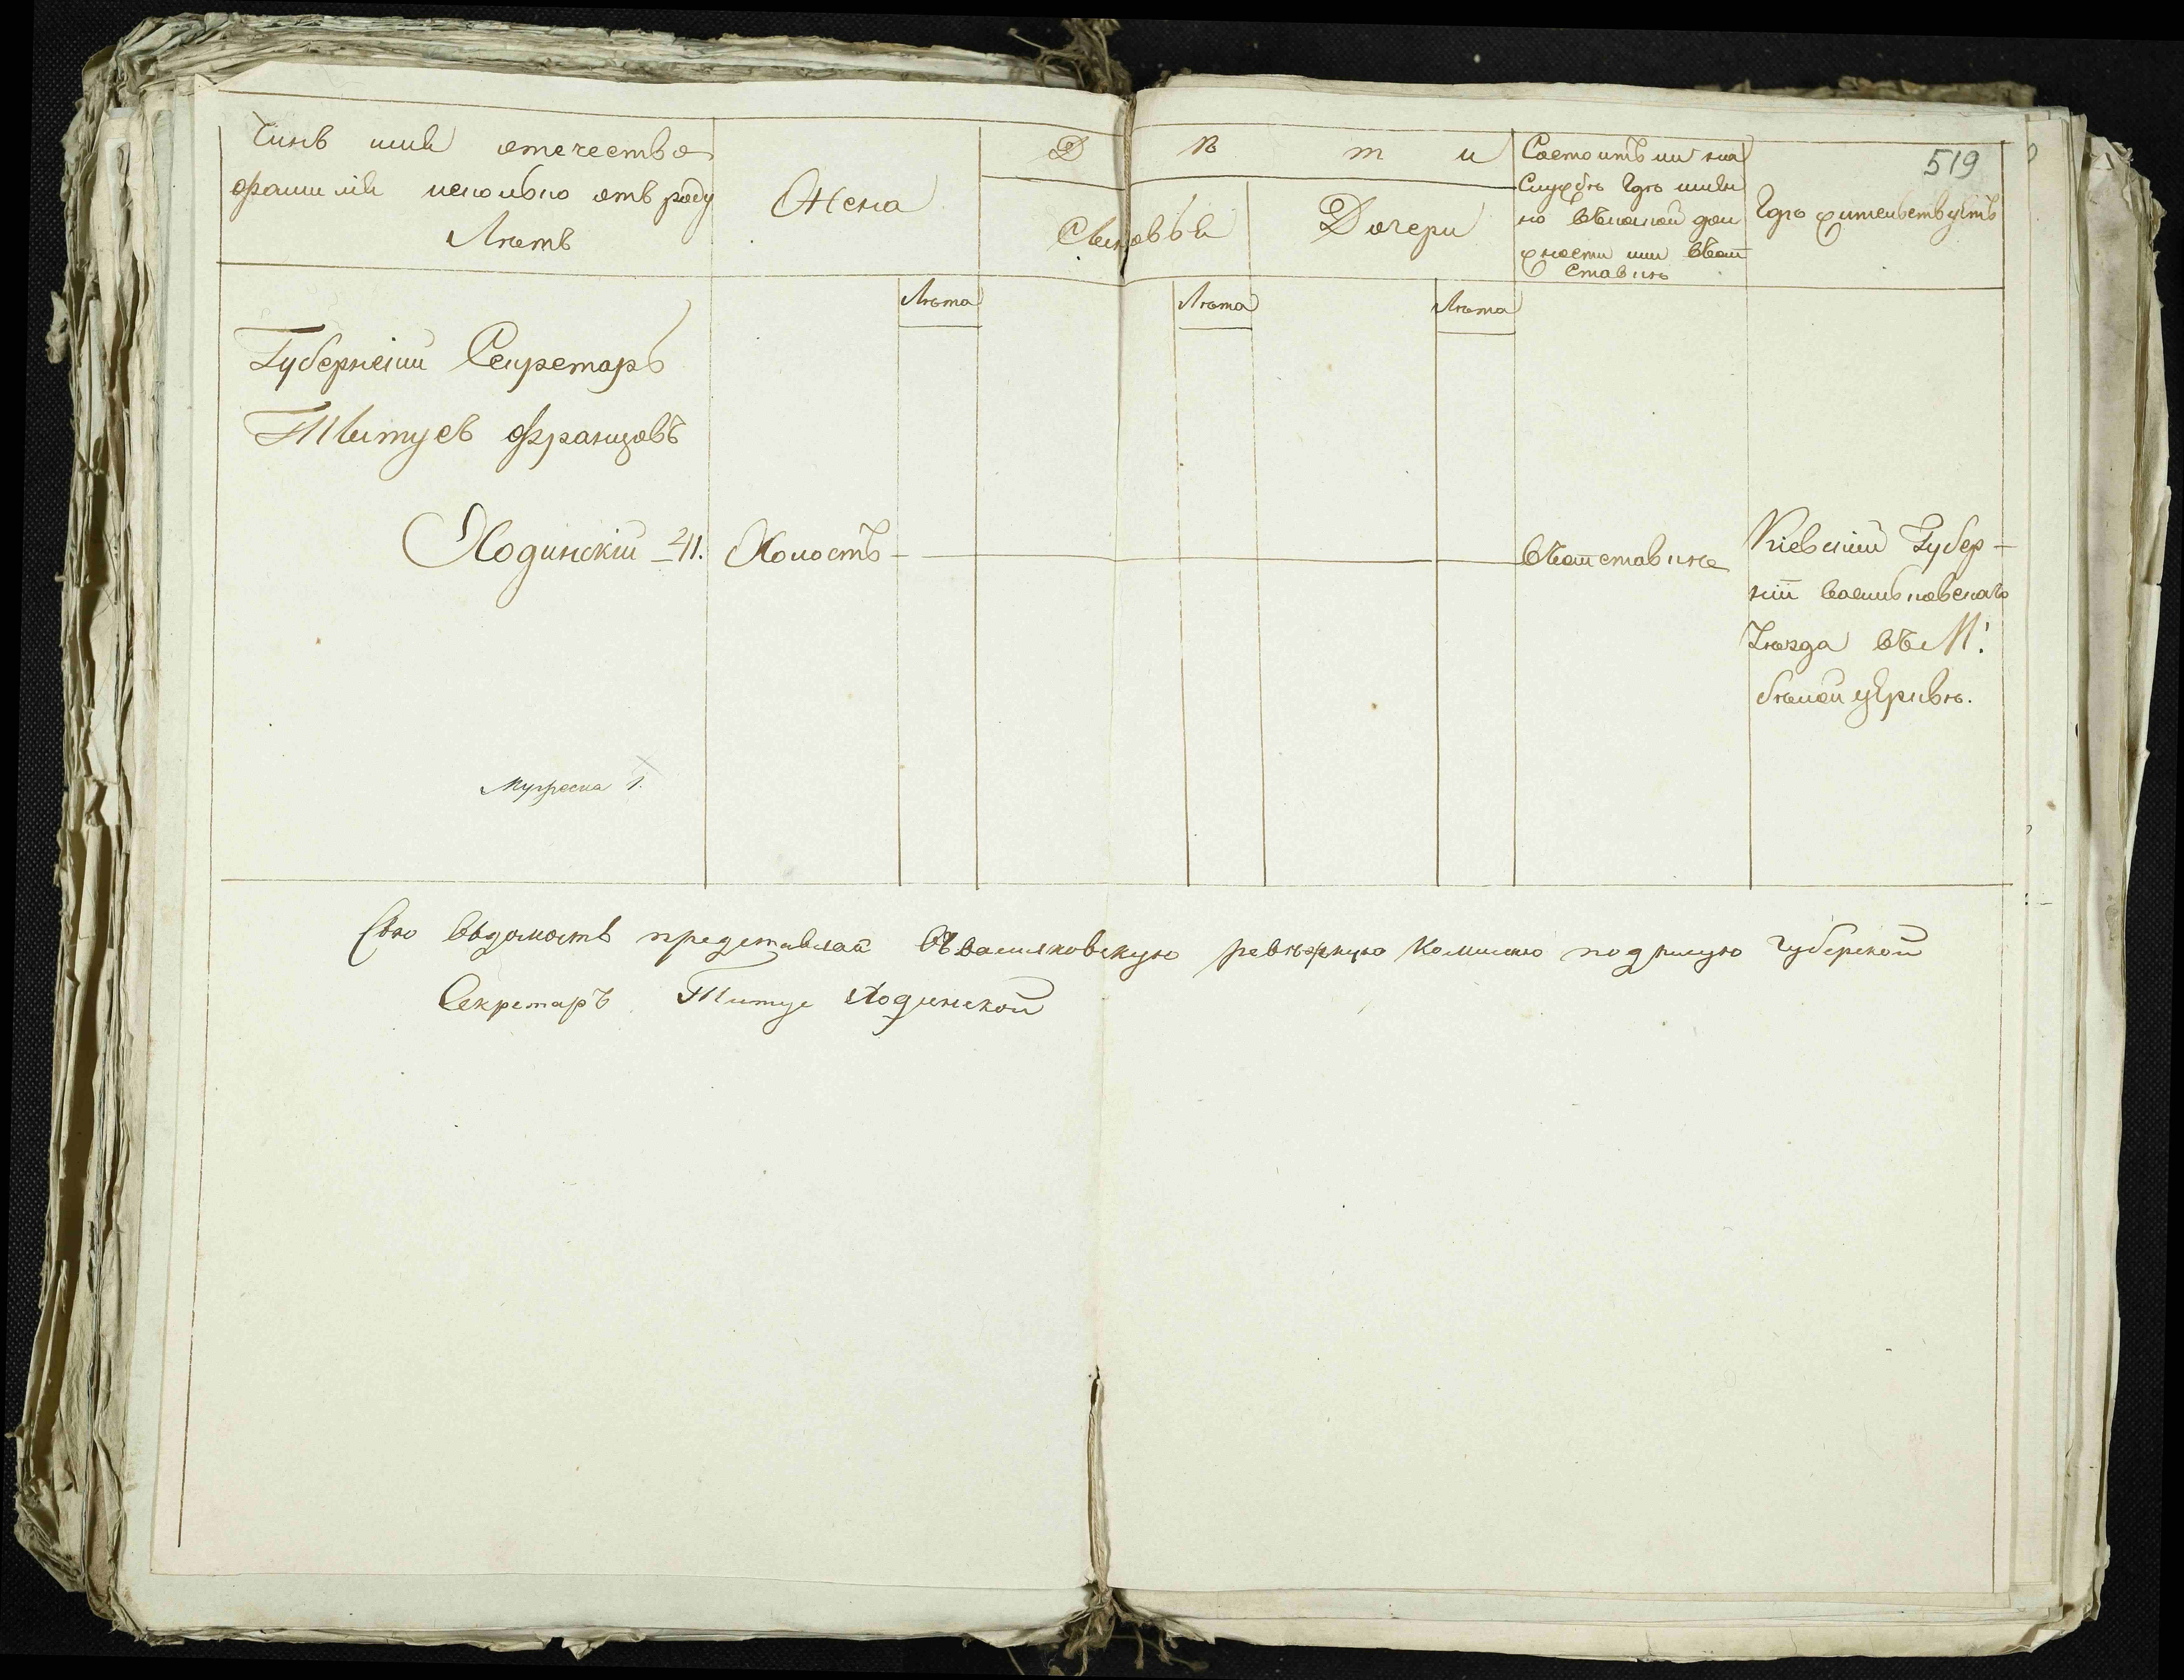 519
Чинъ имя отечество
фамилія исколько отъ роду
Лѣтъ
Жена
Д ѣ т и
Сыновья
Дочери
Состоитъ ли на
Службѣ Гдѣ имян
но вѣкакой дол
жности или вѣот
ставкѣ
Гдѣ жительствуетъ
Лѣта
Лѣта
Лѣта
Губернскій Секретарь
Титусъ Францовъ
Ходинскій - 41.
Холостъ
вѣотставкѣ
Кіевскій Губер-
ніи васильковскаго
Уѣзда въ М:
бѣлой церквѣ.
Мужеска 1.
Сію вѣдомость представлая въ васильковскую ревизкую комисию подписую Губерской
Секретаръ Титус Ходинской